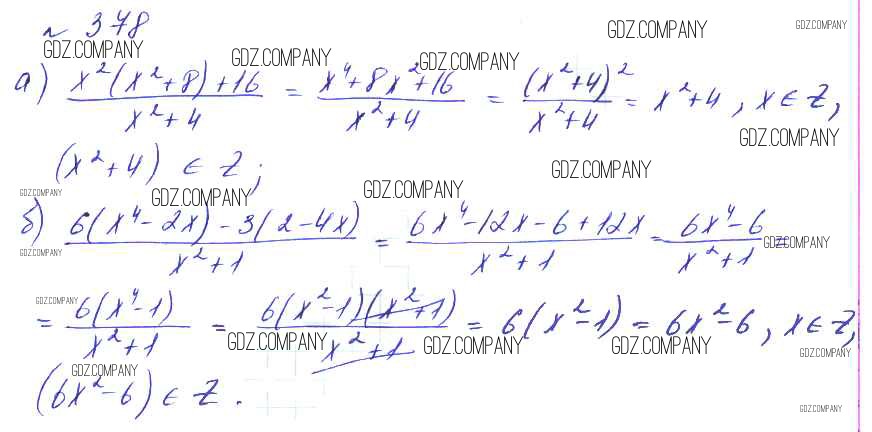 № 378 GDZ.COMPANY GDZ.COMPANY
GDZ.COMPANY GDZ.COMPANY GDZ.COMPANY
а) (x²(x²+8)+16)/(x²+4) = (x⁴+8x²+16)/(x²+4) = (x²+4)²/(x²+4) = x²+4, x∈Z,
GDZ.COMPANY
(x²+4) ∈ Z; GDZ.COMPANY
GDZ.COMPANY GDZ.COMPANY GDZ.COMPANY
б) (6(x⁴-2x)-3(2-4x))/(x²+1) = (6x⁴-12x-6+12x)/(x²+1) = (6x⁴-6)/(x²+1) =
GDZ.COMPANY GDZ.COMPANY
GDZ.COMPANY
= 6(x⁴-1)/(x²+1) = 6(x²-1)(x²+1)/(x²+1) = 6(x²-1) = 6x²-6, x∈Z,
GDZ.COMPANY GDZ.COMPANY GDZ.COMPANY GDZ.COMPANY
GDZ.COMPANY
(6x²-6) ∈ Z.
GDZ.COMPANY